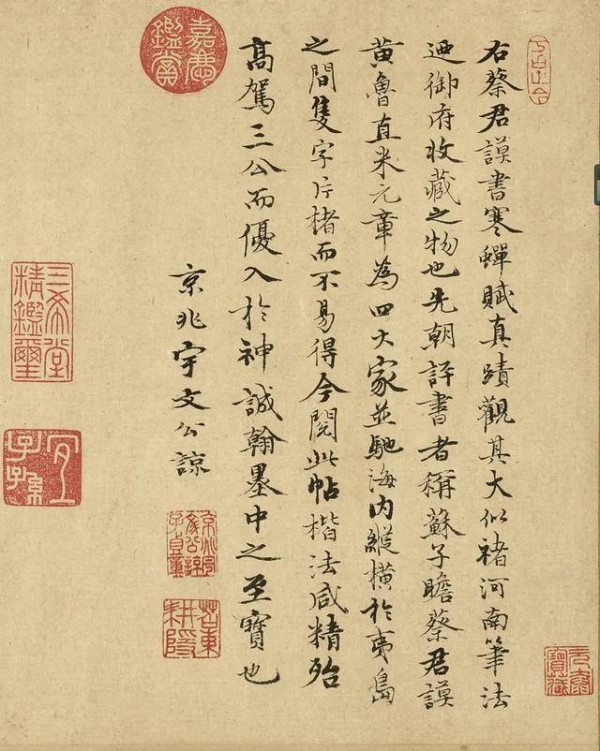 右蔡君謨書寒蟬賦真蹟觀其大似褚河南筆法
迺御府收藏之物也先朝評書者稱蘇子瞻蔡君謨
黄魯直米元章為四大家並馳海内縱橫於夷島
之間隻字片楮而不易得今閲此帖楷法咸精殆
髙駕三公而優入於神誠翰墨中之至寶也
京兆宇文公諒
嘉慶鑑賞
三希堂精鑑璽
宜子孫
苕東耕隱